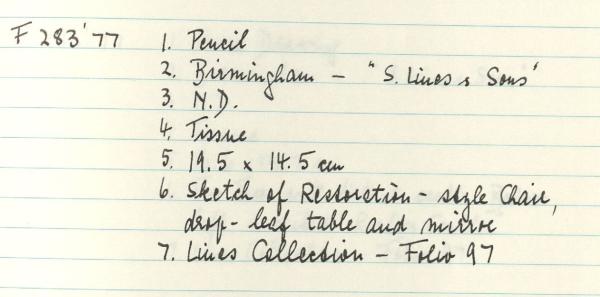 F 283'77 1. Pencil
2. Birmingham - "S. Lines & Sons"
3. N.D.
4. Tissue
5. 19.5 x 14.5 cm
6. Sketch of Restoration - style Chair,
drop - leaf table and mirror
7. Lines Collection - Folio 97